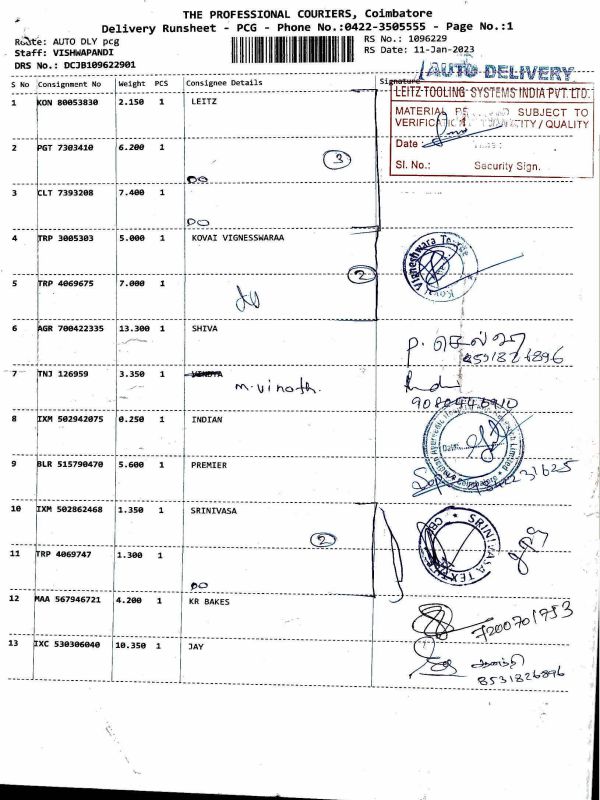 THE PROFESSIONAL COURIERS, Coimbatore
Delivery Runsheet - PCG - Phone No.:0422-3505555 - Page No.:1
Route: AUTO DLY pcg
Staff: VISHWAPANDI
DRS No.: DCJB109622901
RS No.: 1096229
RS Date: 11-Jan-2023
AUTO DELIVERY
S No Consignment No Weight PCS Consignee Details Signature
LEITZ TOOLING SYSTEMS INDIA PVT. LTD.
MATERIAL SUBJECT TO
QUALITY
Date :
Sl. No.: Security Sign.
1 KON 80053830 2.150 1 LEITZ
2 PGT 7303410 6.200 1
3
DO
3 CLT 7393208 7.400 1
DO
4 TRP 3005303 5.000 1 KOVAI VIGNESSWARAA
Kovai Vigneshwara
2
5 TRP 4069675 7.000 1
6 AGR 700422335 13.300 1 SHIVA
8531826896
7 TNJ 126959 3.350 1 VINDYA
M. Vinoth.
9080446910
8 IXM 502942075 0.250 1 INDIAN
9 BLR 515790470 5.600 1 PREMIER
10 IXM 502862468 1.350 1 SRINIVASA
SRINIVASA TEXTILE CBE
2
11 TRP 4069747 1.300 1
DO
12 MAA 567946721 4.200 1 KR BAKES
7200701753
13 IXC 530306040 10.350 1 JAY
8531826896